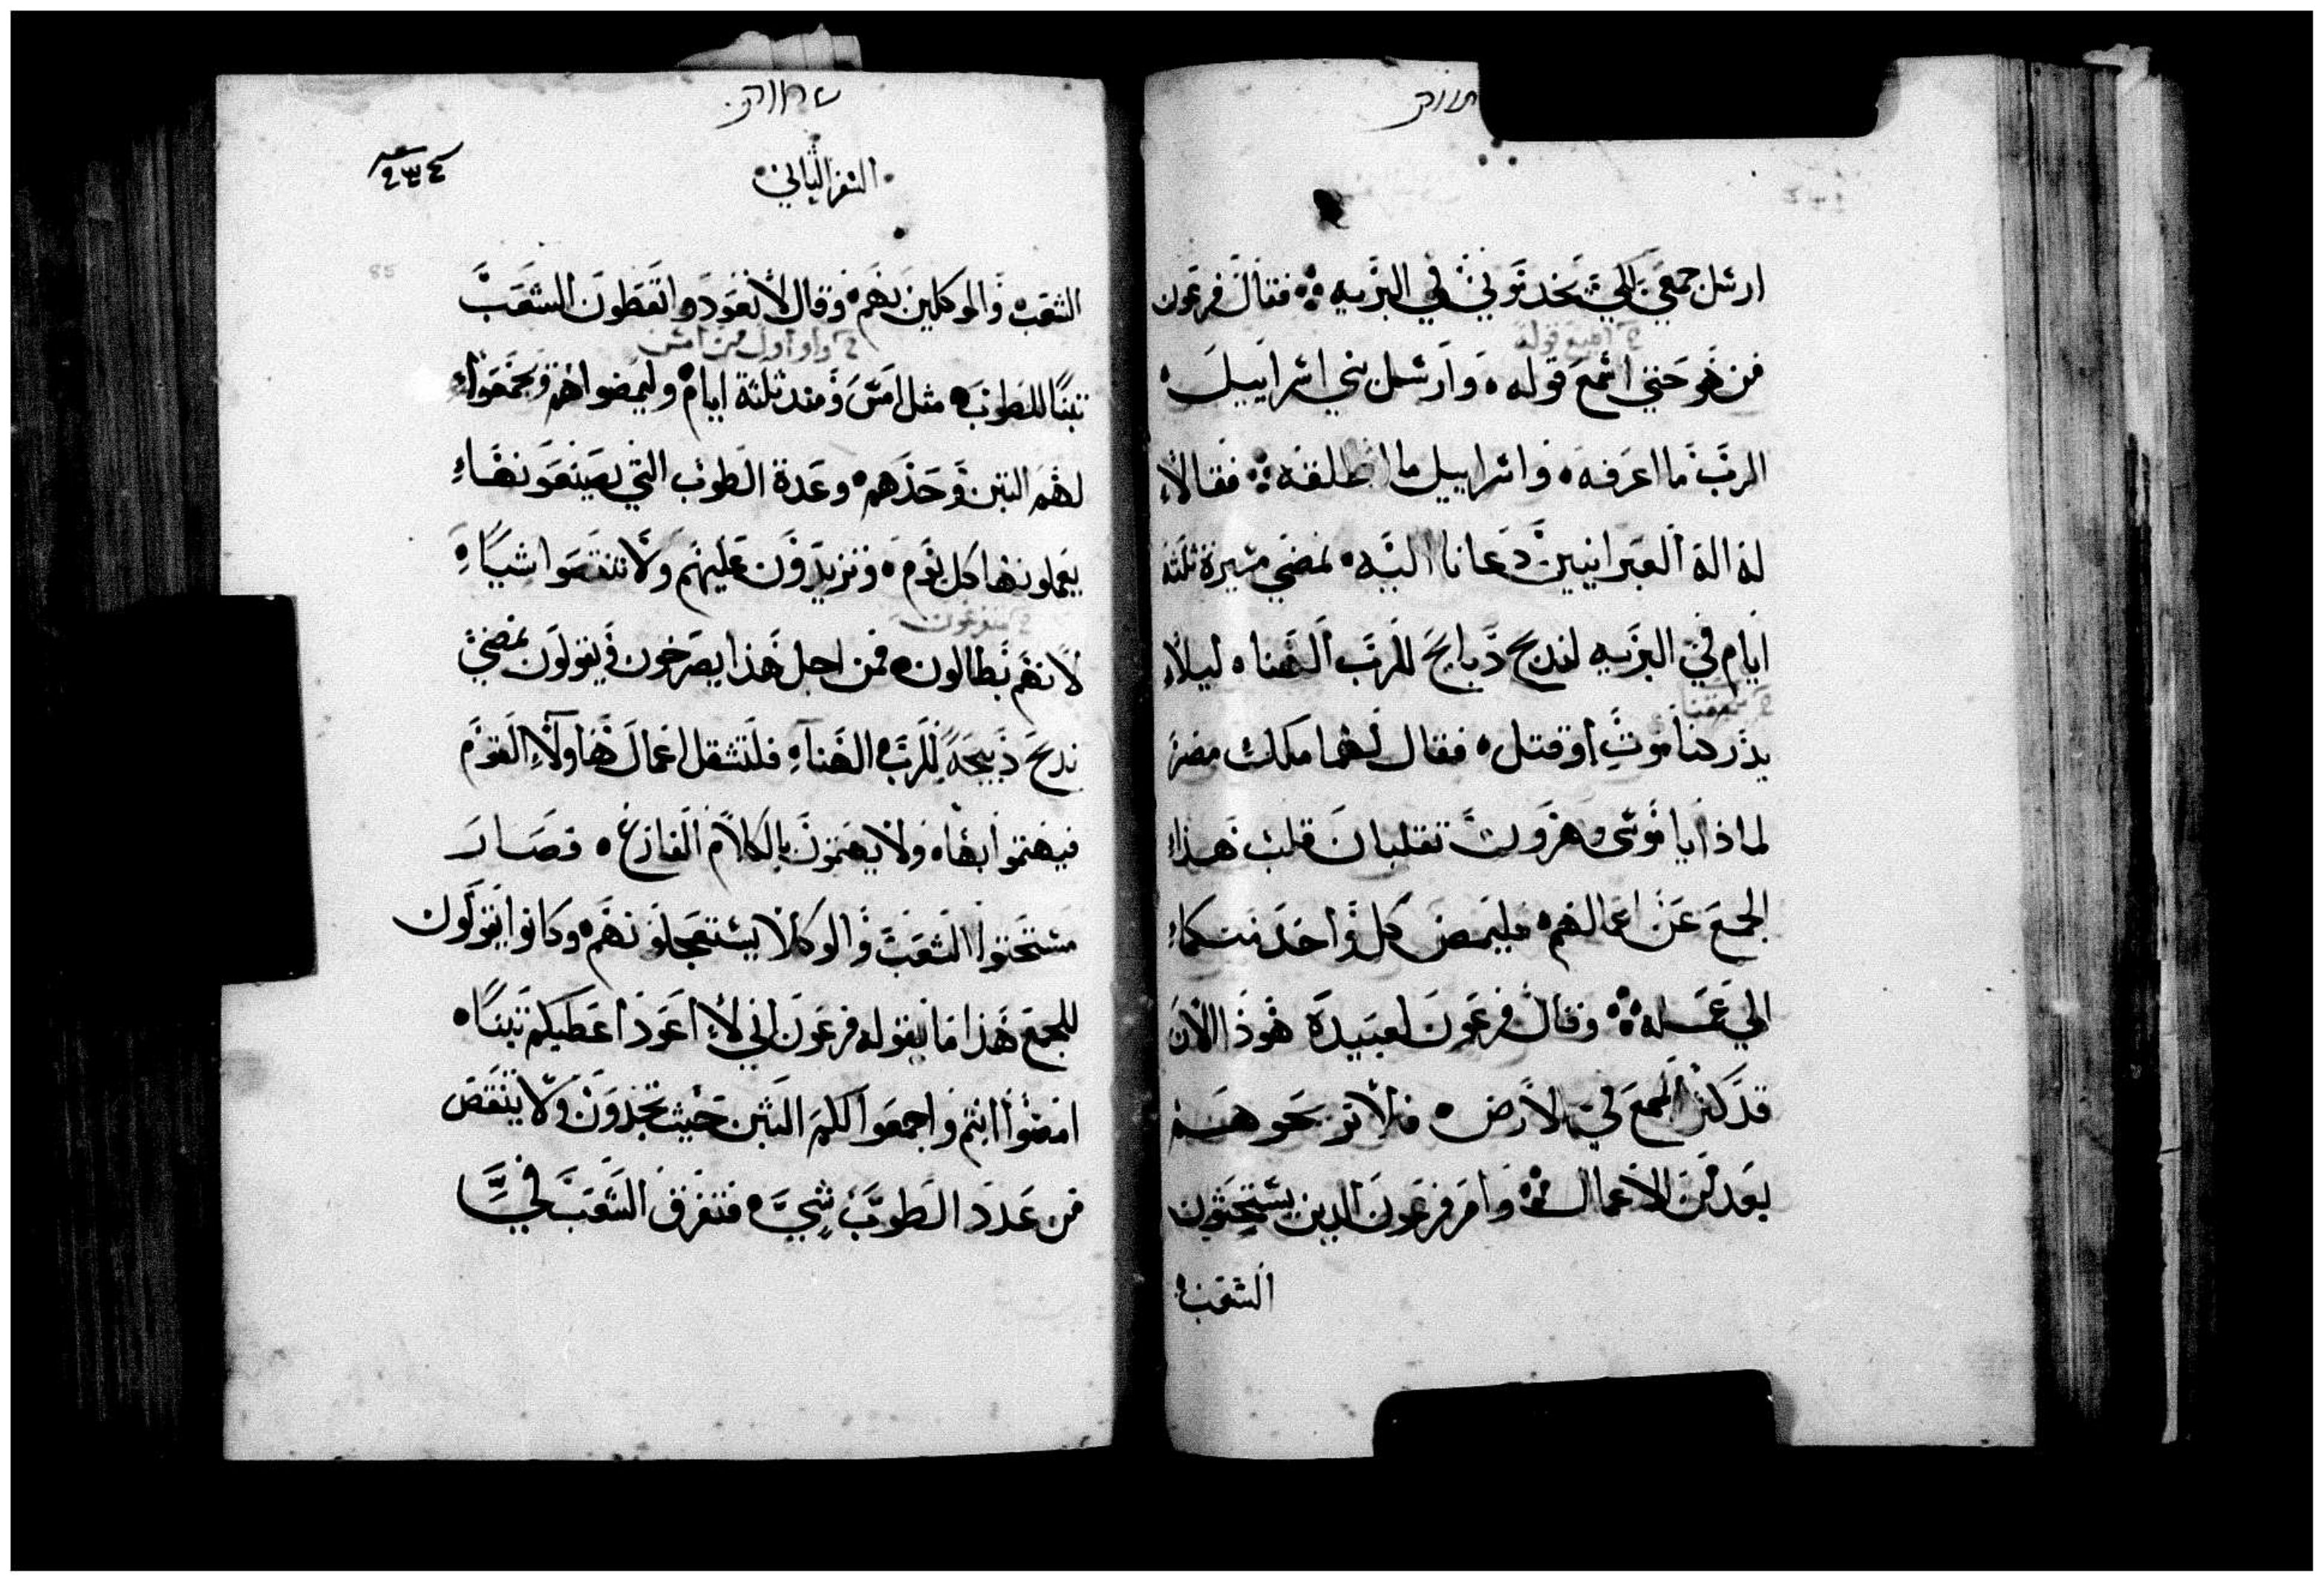 ارسل جمعي لكي يخدموني في البريه فقال فرعون
من هو حتي اسمع قوله وارسل بني اسراييل
الرب ما اعرفه واسراييل ما اطلقه فقالا
له اله العبرانيين دعانا اليه نمضي مسيرة ثلثة
ايام في البريه لندبح دبايح للرب الهنا ليلا
يدركنا موت او قتل فقال لهما ملك مصر
لماذا يا موسي وهرون تقلبان قلب هذا
الجمع عن اعمالهم فليمض كل واحد منكما
الي عمله وقال فرعون لعبيده هوذا الان
قد كثر الجمع في الارض فلا تريحوهم
بعد من الاعمال وامر فرعون الدين يستحثون
الشعب
السفر الثاني
الشعب والموكلين بهم وقال لا تعودوا تعطون الشعب
تبنًا للطوب مثل امس ومند ثلثة ايام وليمضوا هم ويجمعوا
لهم التبن وحدهم وعدة الطوب التي يصنعونها
يعملونها كل يوم وتزيدون عليهم ولا تنقصوا شيئا
لانهم بطالون فمن اجل هذا يصرخون ويقولون نمضي
ندبح دبيحة للرب الهنا فلتثقل اعمال هاولاء القوم
فيهتموا بها ولا يهتمون بالكلام الفارغ فصار
مستحثوا الشعب والوكلا يستعجلونهم وكانوا يقولون
للجمع هذا ما يقوله فرعون اني لا اعود اعطيكم تبنًا
امضوا انتم واجمعوا لكم التبن حيث تجدون ولا ينقص
من عدد الطوب شي فتفرق الشعب في